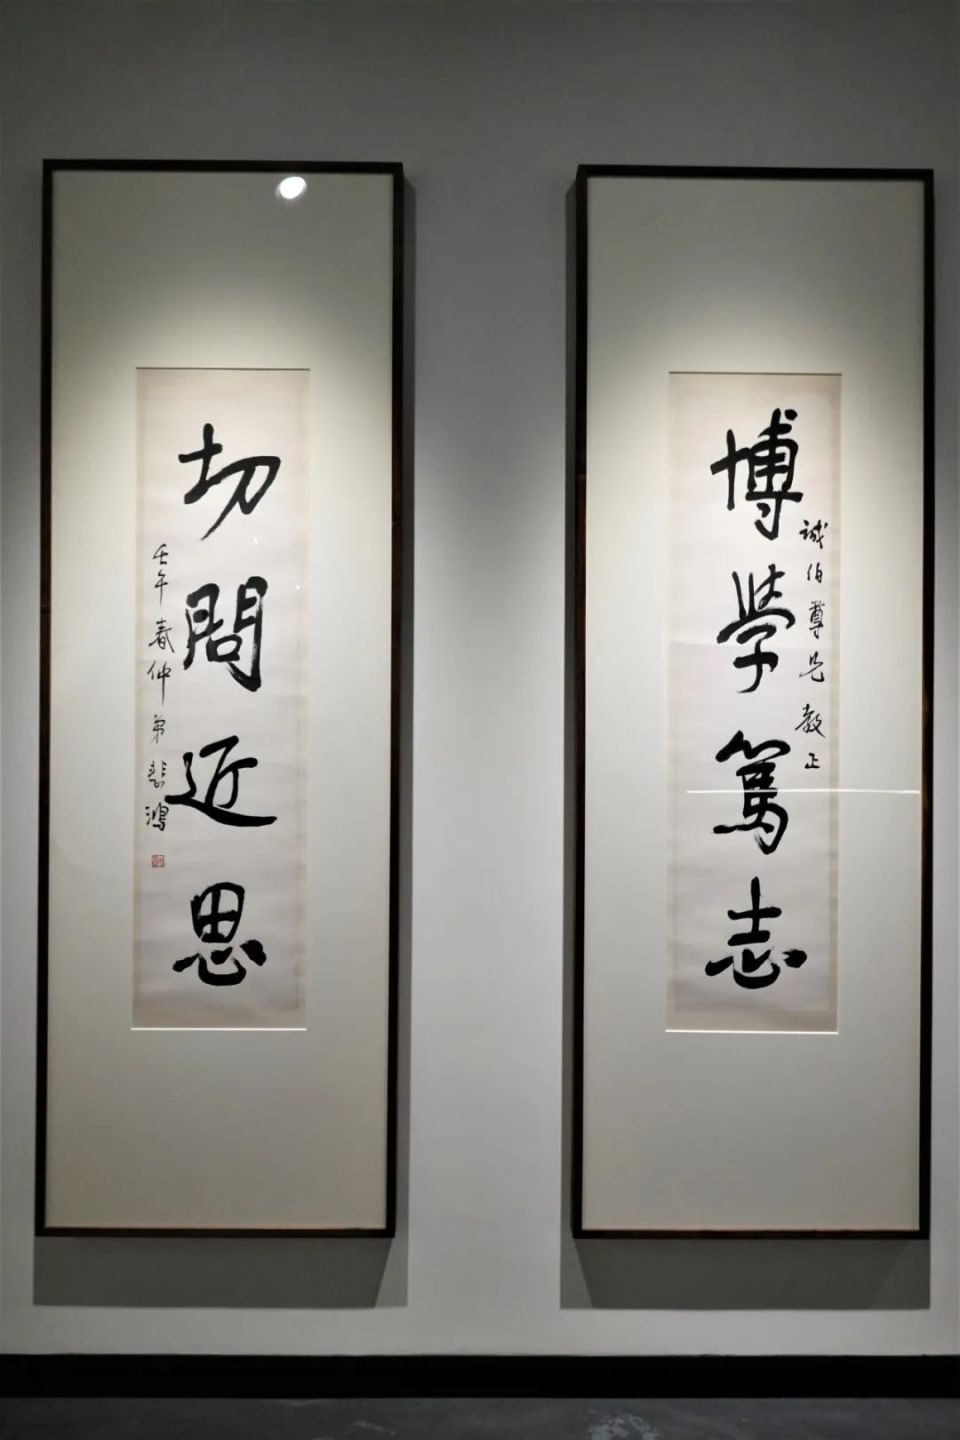 博學篤志
誠伯尊兄教正
切問近思
壬午春仲弟悲鴻